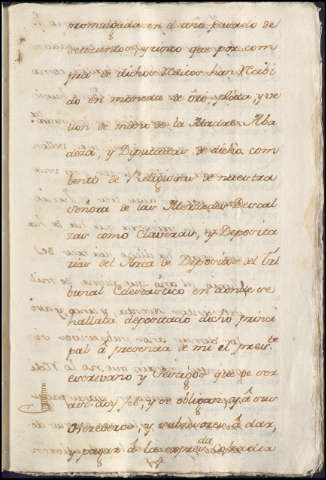 promulgada en el año pasado de
setecientos y cinco que por com
pra de dichos han Rezivi
do en moneda de oro, plata, y ve
llon de mano de la Madre Aba
desa, y Diputadas de dicho com
bento de Religiosas de nuestra
Señora de las Mercedes Descal
zas como Clavarias, y Deposita
rias del Arca de Depositos del tri
bunal Eclesiastico en donde se
hallaba depositado dicho princi
pal á presencia de mi el
escrivano y testigos que de
doy feé, y se obligan, y á sus
Herederos, y subcesores á dar,
y pagar á la